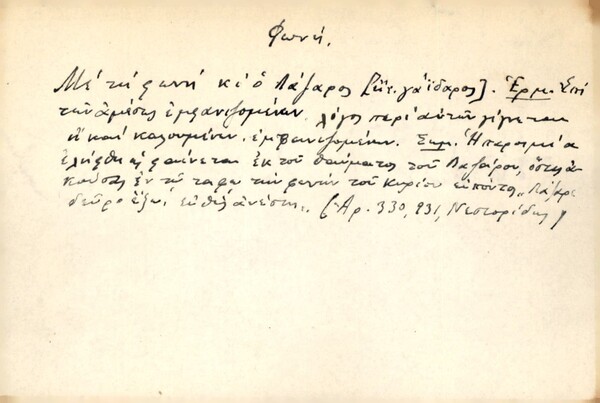 Φωνή.
Μέ τή φωνή κι ὁ Λάζαρος [ἤτ. γάϊδαρος]. Ἑρμ. Ἐπί
τῶν ἀμέσως ἐμφανιζομένων. λόγος περί αὐτῶν γίγνεται
ἤ καί καλουμένων ἐμφανιζομένων. Σημ. Ἡ παροιμία
ἐλήφθη ὡς φαίνεται ἐκ τοῦ θαύματος τοῦ Λαζάρου, ὅστις ἀ-
κούσας ἐν τῷ τάφῳ τήν φωνήν τοῦ Κυρίου εἰπόντος „Λάζαρε
δεῦρο ἔξω, εὐθύς ἀνέστη„. (Ἀρ. 330, 231, Νεστορίδης)